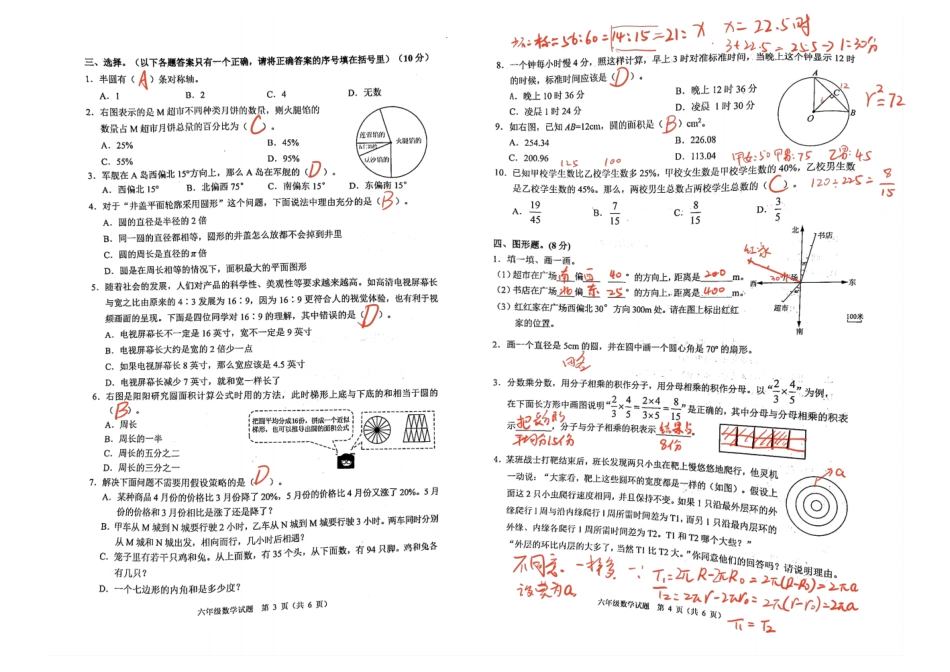 三、选择。（以下各题答案只有一个正确，请将正确答案的序号填在括号里）（10分）
1．半圆有（ A ）条对称轴。
A．1 B．2 C．4 D．无数
2．右图表示的是M超市不同种类月饼的数量，则火腿馅的
数量占M超市月饼总量的百分比为（ C ）。
A．25% B．45%
C．55% D．95%
莲蓉馅的
火腿馅的
豆沙馅的
3．军舰在A岛西偏北15°方向上，那么A岛在军舰的（ D ）。
A．西偏北15° B．北偏西75° C．南偏东15° D．东偏南15°
4．对于“井盖平面轮廓采用圆形”这个问题，下面说法中理由充分的是（ B ）。
A．圆的直径是半径的2倍
B．同一圆的直径都相等，圆形的井盖怎么放都不会掉到井里
C．圆的周长是直径的π倍
D．圆是在周长相等的情况下，面积最大的平面图形
5．随着社会的发展，人们对产品的科学性、美观性等要求越来越高。如高清电视屏幕长
与宽之比由原来的4：3发展为16：9，因为16：9更符合人的视觉体验，也有利于视
频画面的呈现。下面是四位同学对16：9的理解，其中错误的是（ D ）。
A．电视屏幕长不一定是16英寸，宽不一定是9英寸
B．电视屏幕长大约是宽的2倍少一点
C．如果电视屏幕长8英寸，那么宽应该是4.5英寸
D．电视屏幕长减少7英寸，就和宽一样长了
6．右图是阳阳研究圆面积计算公式时用的方法，此时梯形上底与下底的和相当于圆的
（ B ）。
A．周长
B．周长的一半
C．周长的五分之二
D．周长的三分之一
把圆平均分成16份，拼成一个近似
梯形，也可以推导出圆的面积公式
7．解决下面问题不需要用假设策略的是（ D ）。
A．某种商品4月份的价格比3月份降了20%，5月份的价格比4月份又涨了20%。5月
份的价格和3月份相比是涨了还是降了？
B．甲车从M城到N城要行驶2小时，乙车从N城到M城要行驶3小时。两车同时分别
从M城和N城出发，相向而行，几小时后相遇？
C．笼子里有若干只鸡和兔。从上面数，有35个头，从下面数，有94只脚。鸡和兔各
有几只？
D．一个七边形的内角和是多少度？
六年级数学试题 第3页（共6页）
标=56:60=14:15=21:x x=22.5时
3+22.5=25.5→1:30分
8．一个钟每小时慢4分，照这样计算，早上3时对准标准时间，当晚上这个钟显示12时
的时候，标准时间应该是（ D ）。
A．晚上10时36分 B．晚上12时36分
C．凌晨1时24分 D．凌晨1时30分
A
C
12
O
B
r²=72
9．如右图，已知AB=12cm，圆的面积是（ B ）cm²。
A．254.34 B．226.08
C．200.96 D．113.04
125 100 甲女:50 甲男:75 乙男:45
10．已知甲校学生数比乙校学生数多25%，甲校女生数是甲校学生数的40%，乙校男生数
是乙校学生数的45%。那么，两校男生总数占两校学生总数的（ C ）。 120÷225=8/15
A．19/45 B．7/15 C．8/15 D．3/5
四、图形题。（8分）
1．填一填、画一画。
（1）超市在广场 南 偏 西 40 °的方向上，距离是 200 m。
（2）书店在广场 北 偏 东 25 °的方向上，距离是 400 m。
（3）红红家在广场西偏北30°方向300m处。请在图上标出红红
家的位置。
北
书店
红家
西
30°
广场
东
超市
南
100米
2．画一个直径是5cm的圆，并在圆中画一个圆心角是70°的扇形。
3．分数乘分数，用分子相乘的积作分子，用分母相乘的积作分母。以“2/3×4/5”为例，
在下面长方形中画图说明“2/3×4/5=2×4/3×5=8/15”是正确的，其中分母与分母相乘的积表
示 平均分15份 ，分子与分子相乘的积表示 结果占8份 。
4．某班战士打靶结束后，班长发现两只小虫在靶上慢悠悠地爬行，他灵机
一动说：“大家看，靶上这些圆环的宽度都是一样的（如图）。假设上
面这2只小虫爬行速度相同，并且保持不变。如果1只沿最外层环的外
缘爬行1周与沿内缘爬行1周所需时间差为T1，而另1只沿最内层环的
外缘、内缘各爬行1周所需时间差为T2。T1和T2哪个大些？”
“外层的环比内层的大多了，当然T1比T2大。”你同意他们的回答吗？请说明理由。
a
不同意。一样多 ∵ T₁=2πR-2πR₀=2π(R-R₀)=2πa
设宽为a T₂=2πr-2πr₀=2π(r-r₀)=2πa
T₁=T₂
六年级数学试题 第4页（共6页）